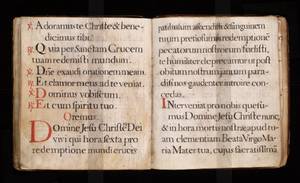 ℣ Adoramus te Christe & bene-
dicimus tibi.
℟ Quia per Sanctam Crucem
tuam redemisti mundum.
℣ Dñe exaudi orationem meam.
℟ Et clamor meus ad te veniat.
℣ Dominus vobiscum.
℟ Et cum spiritu tuo.
Oremus.
Domine Jesu Christe Dei
vivi qui hora sexta pro
redemptione mundi crucis
patibulum ascendisti & sanguinem
tuum pretiosum in redemptionē
peccatorum nostrorum fudisti,
te humiliter deprecamur ut post
obitum nostrum januam para-
disi nos gaudenter introire con-
cedas.
Interveniat pro nobis quesu-
mus Domine Jesu Christe nunc,
& in hora mortis nostrae apud tu-
am clementiam Beata Virgo Ma-
ria Mater tua, cujus sacratissimā